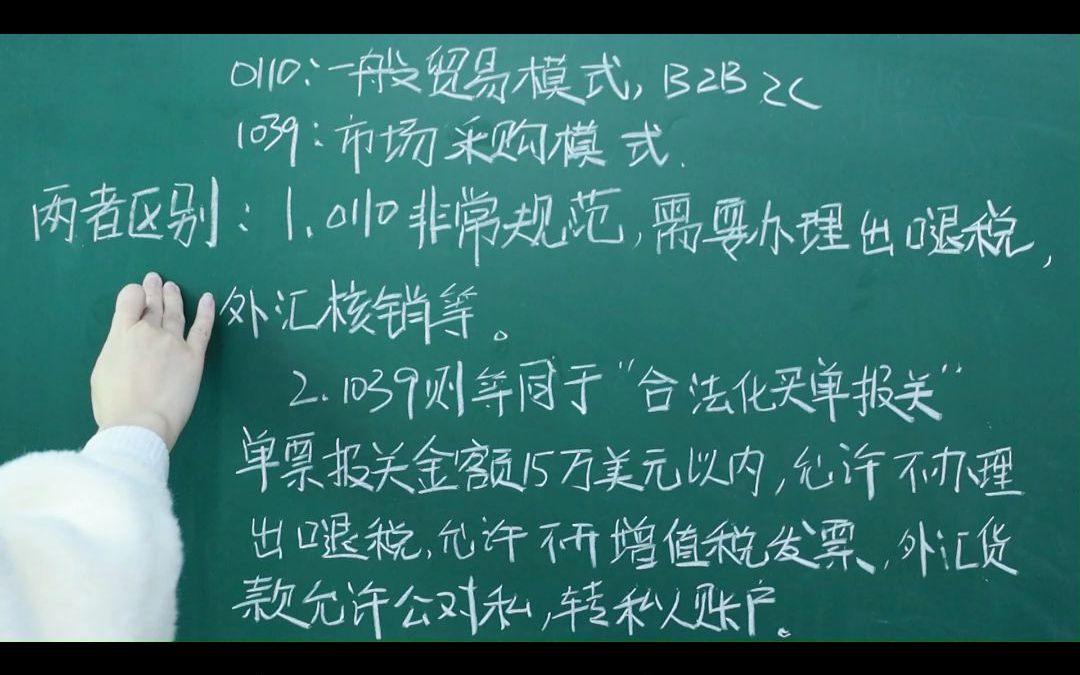 0110:一般贸易模式,B2B 2C
1039:市场采购模式.
两者区别:1.0110非常规范,需要办理出口退税,
外汇核销等。
2.1039则等同于“合法化买单报关”
单票报关金额15万美元以内,允许不办理
出口退税,允许不开增值税发票、外汇货
款允许公对私,转私人账户。